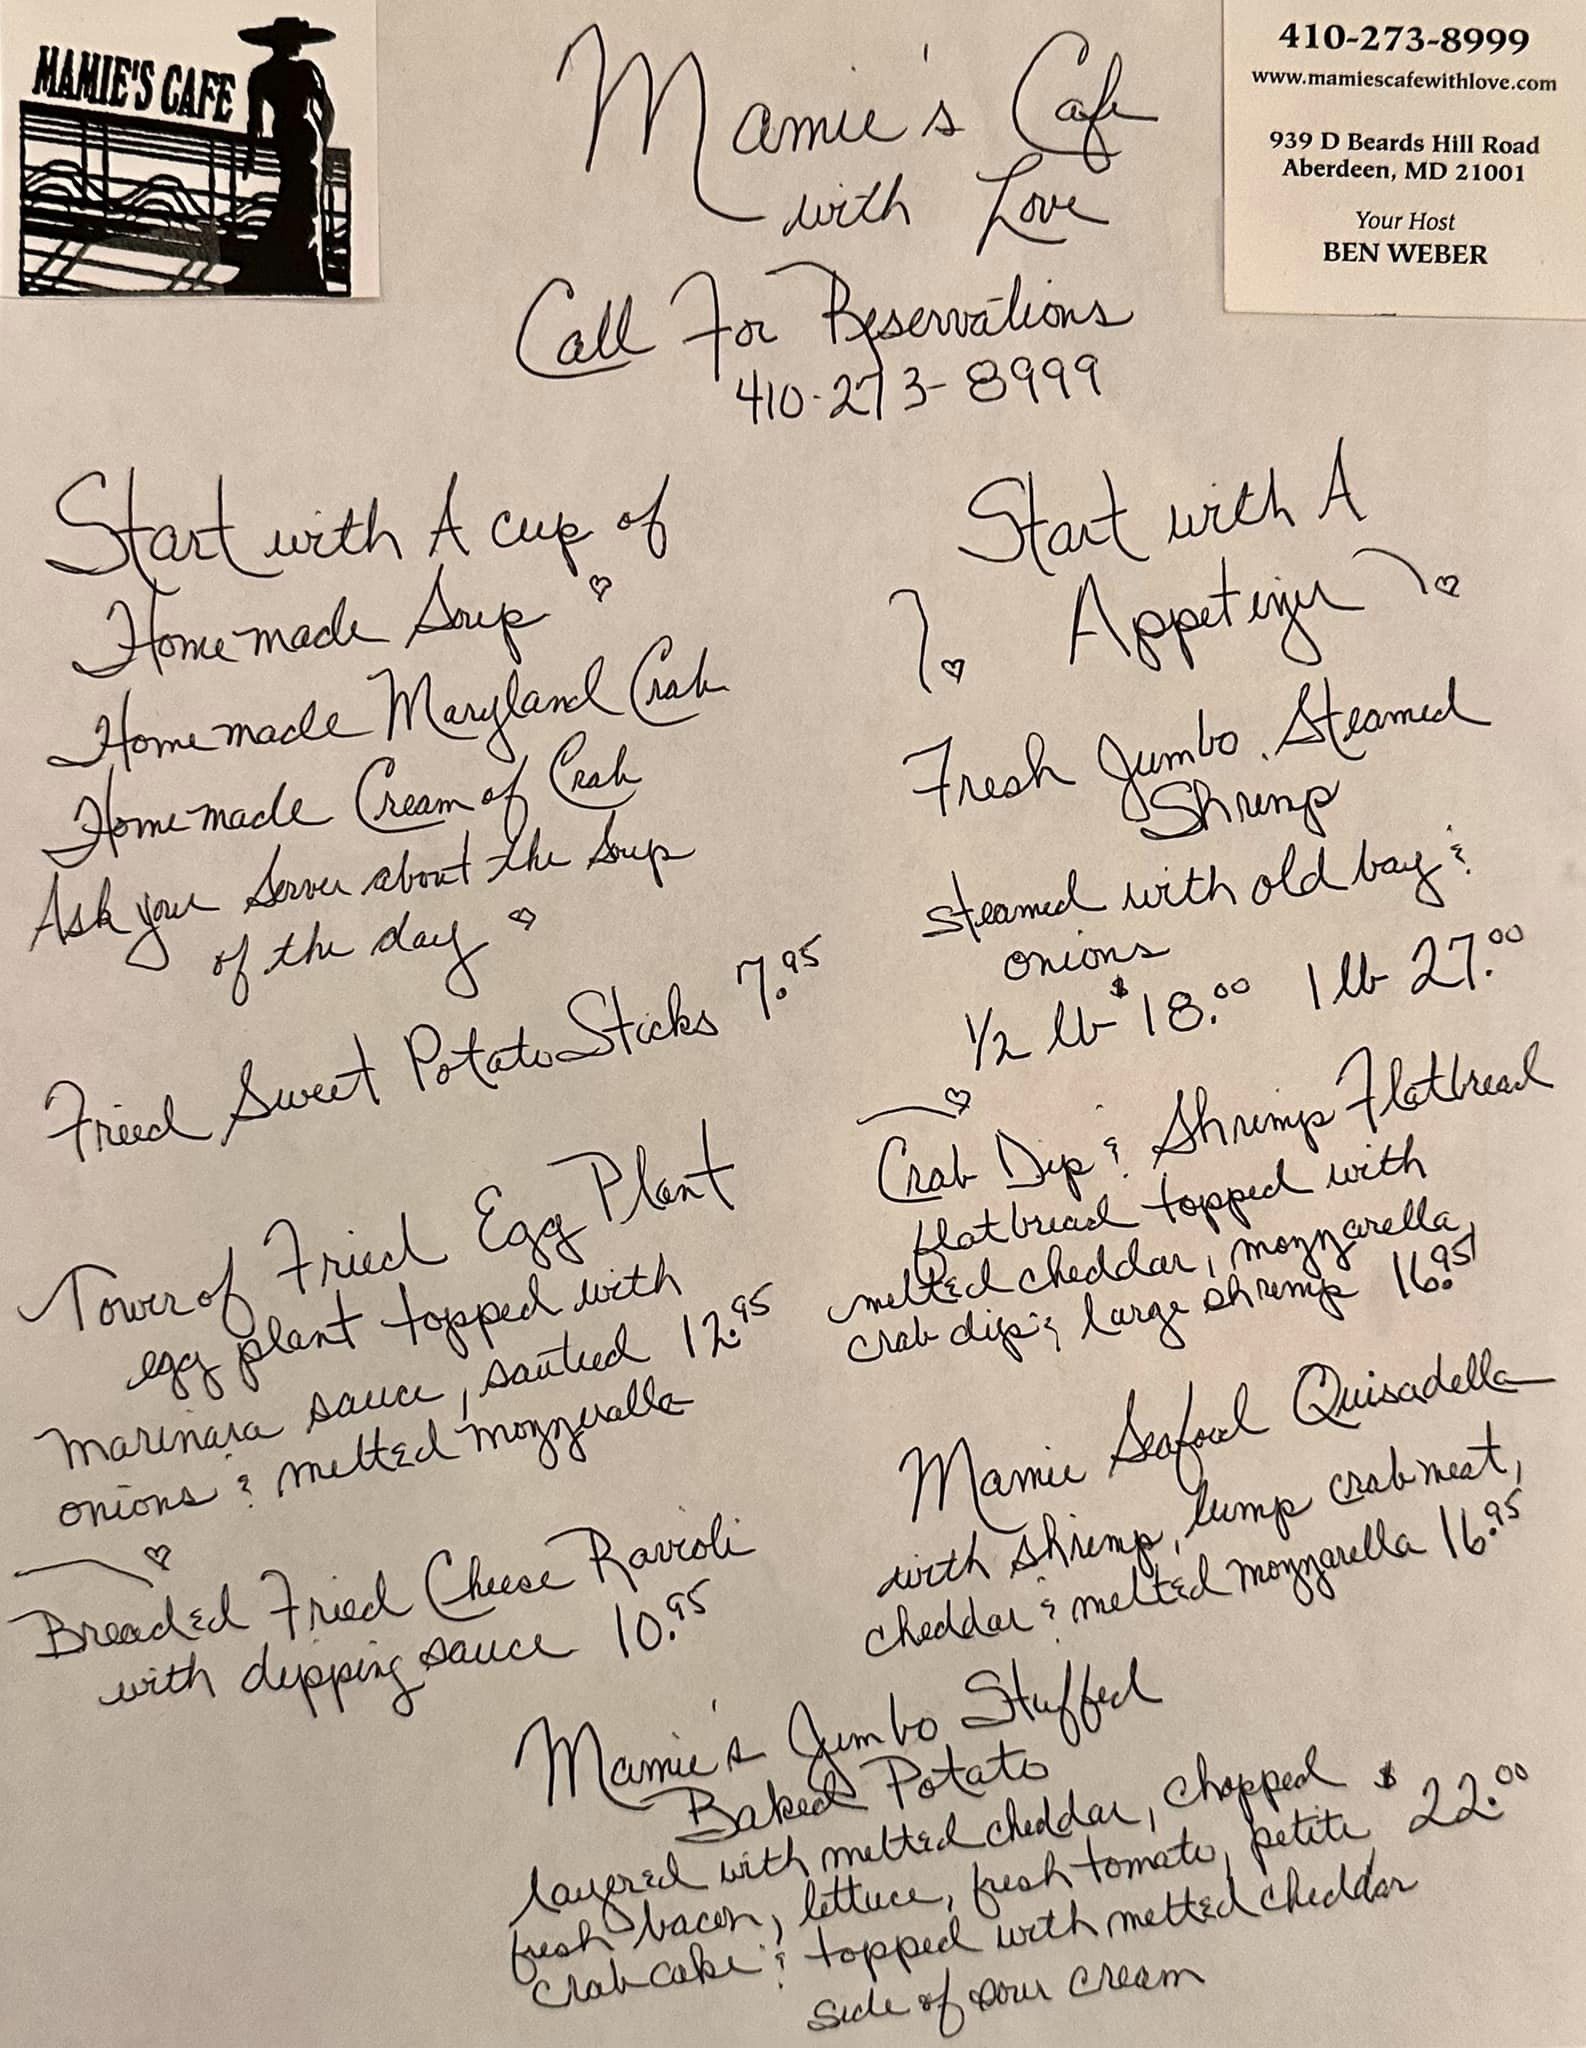 MAMIE'S CAFE
Mamie's Cafe
with Love
Call For Reservations
410-273-8999
410-273-8999
www.mamiescafewithlove.com
939 D Beards Hill Road
Aberdeen, MD 21001
Your Host
BEN WEBER
Start with A cup of
Homemade Soup
Homemade Maryland Crab
Homemade Cream of Crab
Ask your Server about the Soup
of the day
Fried Sweet Potato Sticks 7.95
Tower of Fried Egg Plant
egg plant topped with
marinara sauce, sautied 12.95
onions & melted mozzeralla
Breaded Fried Cheese Ravioli
with dipping sauce 10.95
Start with A
Appetizer
Fresh Jumbo Steamed
Shrimp
steamed with old bay &
onions
1/2 lb $18.00 1 lb 27.00
Crab Dip & Shrimp Flatbread
flatbread topped with
melted cheddar, mozzarella,
crab dip & large shrimp 16.95
Mamie Seafood Quisadella
with shrimp, lump crabmeat,
cheddar & melted mozzarella 16.95
Mamie's Jumbo Stuffed
Baked Potato
layered with melted cheddar, chopped $22.00
fresh bacon, lettuce, fresh tomato, petite
crabcake & topped with melted cheddar
side of sour cream